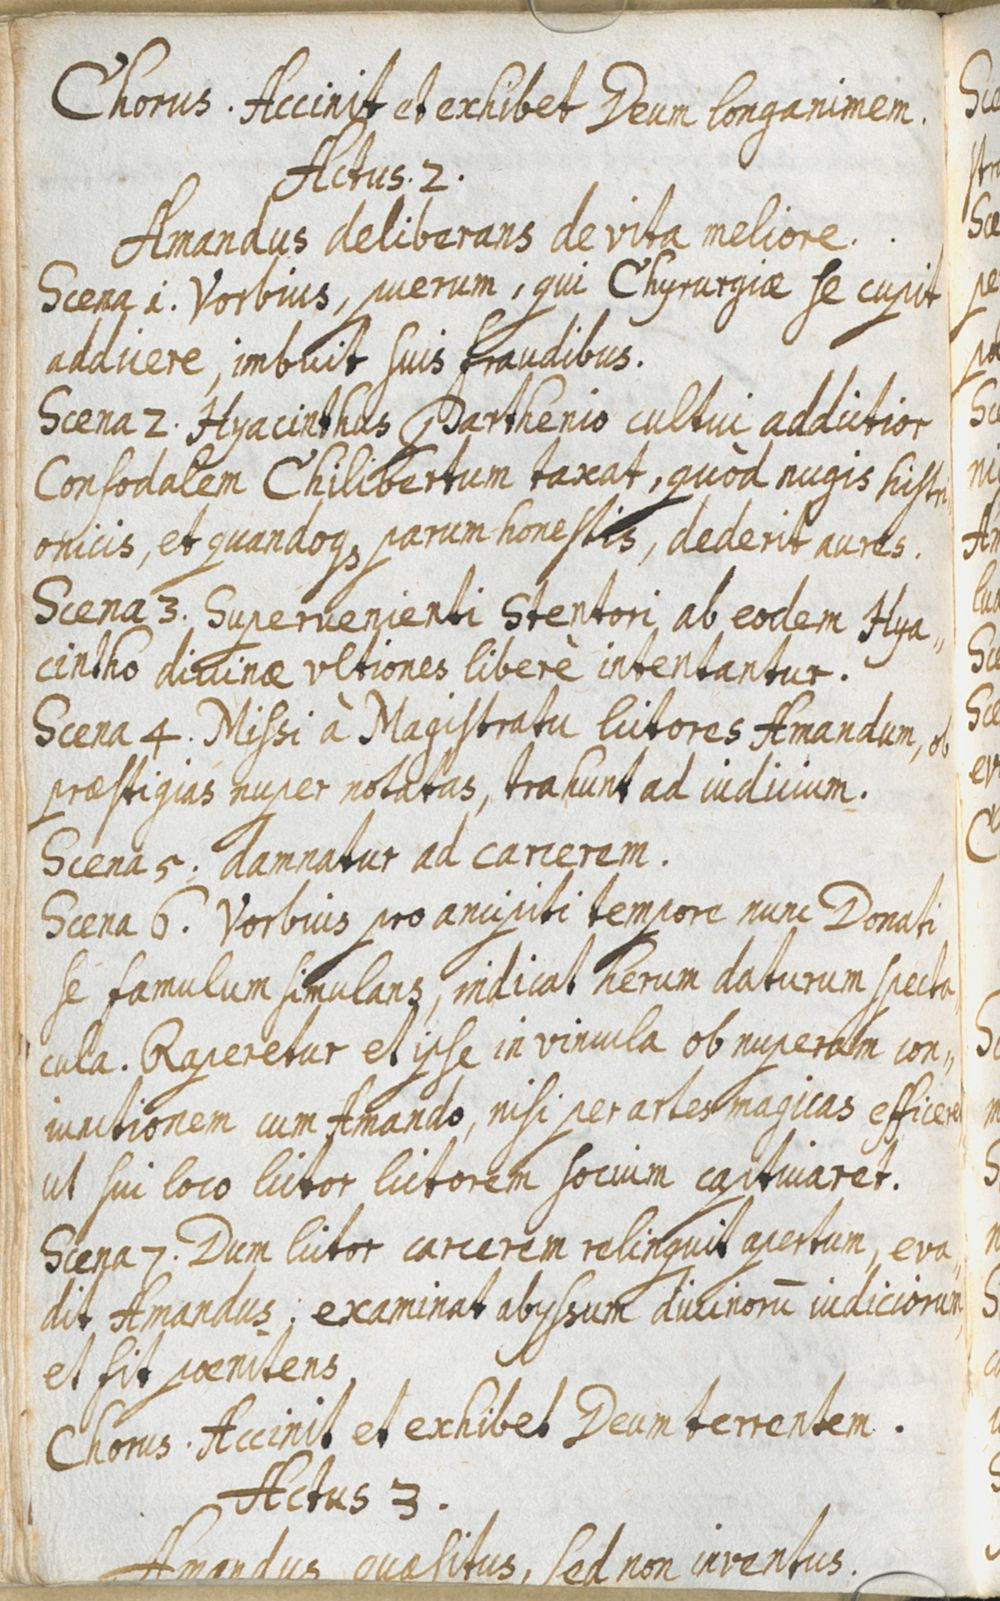 Chorus. Accinit et exhibet Deum longanimem.
Actus. 2.
Amandus deliberans de vita meliore.
Scena 1. Vorbius, puerum, qui Chyrurgiæ se cupit
addicere, imbuit suis fraudibus.
Scena 2. Hyacinthus Parthenio cultui addictior
Consodalem Chilibertum taxat, quòd nugis histri
onicis, et quandoq3 parum honestis, dederit aures.
Scena 3. Superuenienti Stentori ab eodem Hya„
cintho diuinæ vltiones liberè intentantur.
Scena 4. Missi à Magistratu lictores Amandum, ob
præstigias nuper notatas, trahunt ad iudicium.
Scena 5. damnatur ad carcerem.
Scena 6. Vorbius pro ancipiti tempore nunc Donati
se famulum simulans, indicat herum daturum specta„
cula. Raperetur et ipse in vincula ob nuperam con„
iunctionem cum Amando, nisi per artes magicas efficeret
ut sui loco lictor lictorem socium captiuaret.
Scena 7. Dum lictor carcerem relinquit apertum, eva„
dit Amandus; examinat abyssum diuinorū iudiciorum,
et fit poenitens.
Chorus. Accinit et exhibet Deum terrentem.
Actus 3.
Amandus quæsitus, sed non inventus.